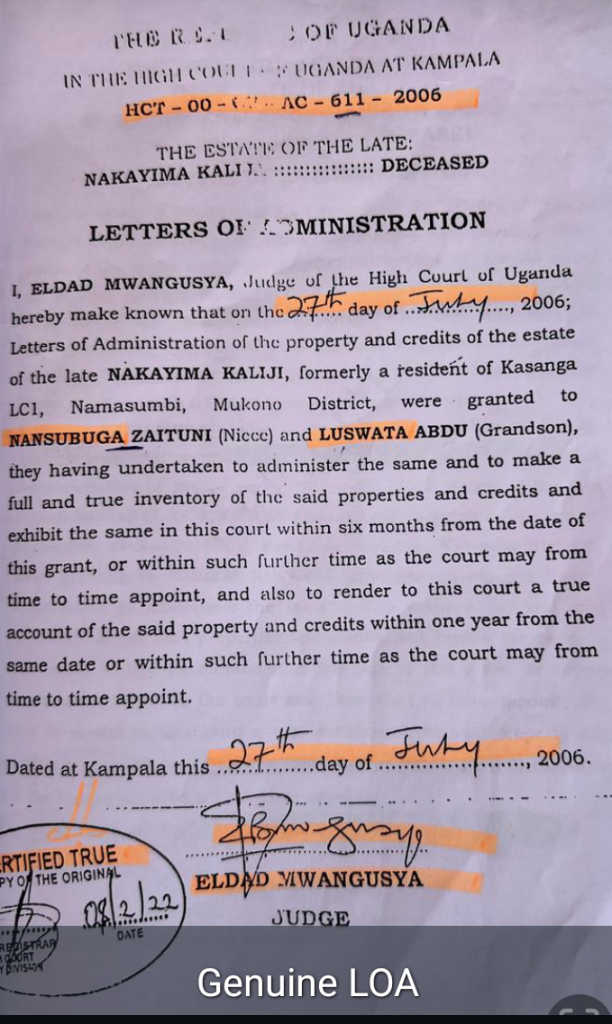 THE OF UGANDA
IN THE HIGH UGANDA AT KAMPALA
HCT - 00 - AC - 611 - 2006
THE ESTATE OF THE LATE:
NAKAYIMA :::::::::::::::: DECEASED
LETTERS OF ADMINISTRATION
I, ELDAD MWANGUSYA, Judge of the High Court of Uganda
hereby make known that on the 27th day of July, 2006;
Letters of Administration of the property and credits of the estate
of the late NAKAYIMA KALIJI, formerly a resident of Kasanga
LC1, Namasumbi, Mukono District, were granted to
NANSUBUGA ZAITUNI (Niece) and LUSWATA ABDU (Grandson),
they having undertaken to administer the same and to make a
full and true inventory of the said properties and credits and
exhibit the same in this court within six months from the date of
this grant, or within such further time as the court may from
time to time appoint, and also to render to this court a true
account of the said property and credits within one year from the
same date or within such further time as the court may from
time to time appoint.
Dated at Kampala this 27th day of July, 2006.
ELDAD MWANGUSYA
JUDGE
RTIFIED TRUE
PY OF THE ORIGINAL
08/2/22
DATE
REGISTRAR
COURT
DIVISION
Genuine LOA